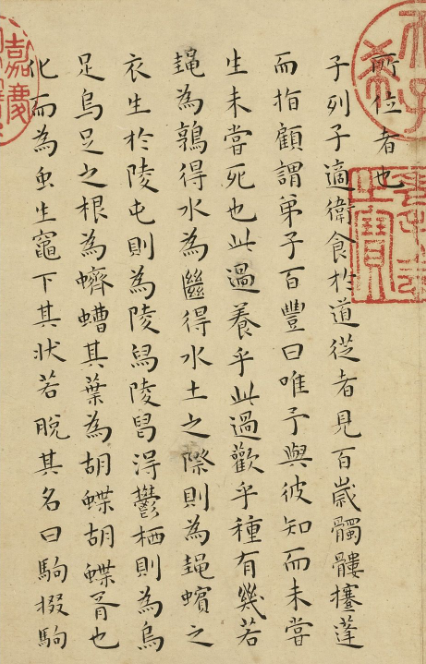 所位者也
子列子適衛食扵道從者見百歲髑髏攓蓬
而指顧謂弟子百豐曰唯予與彼知而未嘗
生未嘗死也此過養乎此過歡乎種有幾若
蠅為鶉得水為㡭得水土之際則為蠅蠙之
衣生於陵屯則為陵舄陵舄得鬱栖則為烏
足烏足之根為蠐螬其葉為胡蝶胡蝶胥也
化而為虫生竈下其状若脱其名曰駒掇駒
天子
希
之寶
嘉慶